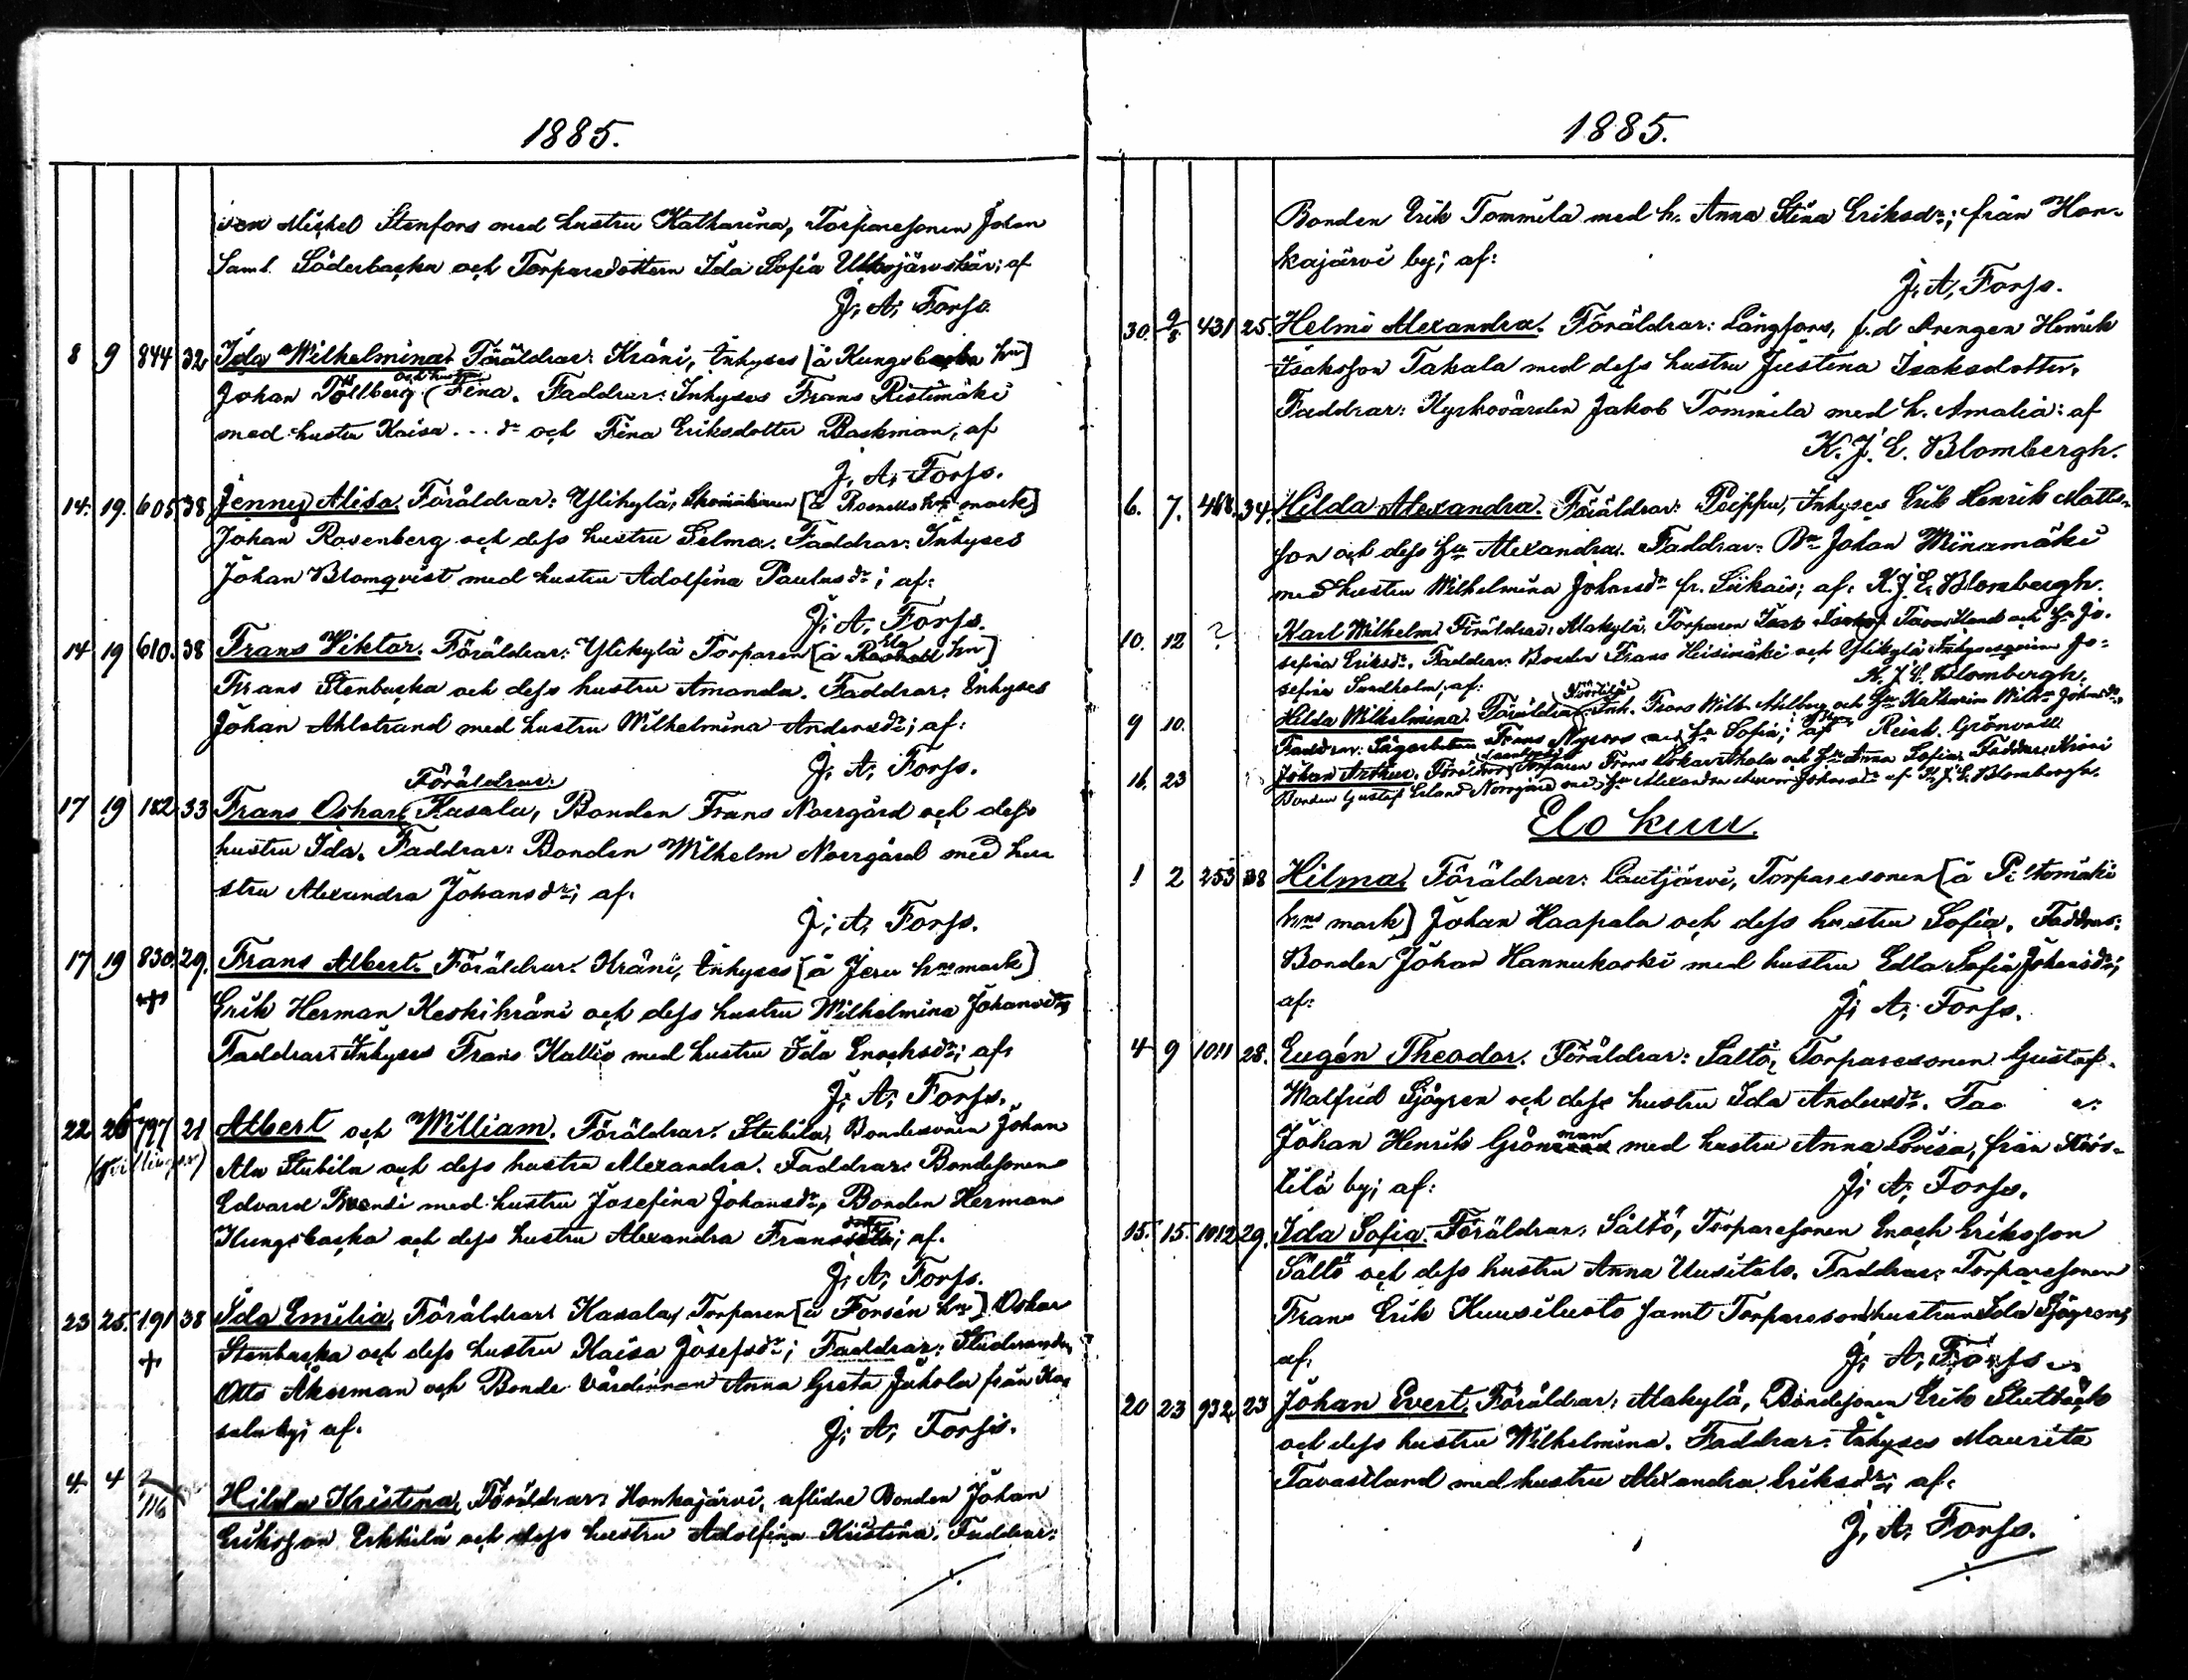 1885.
ven Mickel Stenfors med hustru Katharina, Torparesonen Johan
Saml. Söderbacka och Torparedottern Ida Sofia af
J. A. Forss.
8 9 844 32 Ida Wilhelmina. Föräldrar: Kråni, Inhyses [å Kungsbacka hn]
Johan Tällberg och hustru Fina. Faddrar: Inhyses Frans Ristimäki
med hustru Kaisa ... dr och Fina Eriksdotter Backman, af
J. A. Forss.
14. 19. 605 38 Jenny Alisa. Föräldrar: Ylikylä, [å mark]
Johan Rosenberg och dess hustru Selma. Faddrar: Inhyses
Johan Blomqvist med hustru Adolfina Paulusdr; af:
J. A. Forss.
14 19 610. 38 Frans Viktor. Föräldrar: Ylikylä Torparen [å hn]
Frans Stenbacka och dess hustru Amanda. Faddrar: Inhyses
Johan Ahlstrand med hustru Wilhelmina Andersdr; af:
J. A. Forss.
Föräldrar:
17 19 182 33 Frans Oskar Kasala, Bonden Frans Norrgård och dess
hustru Ida. Faddrar: Bonden Wilhelm Norrgård med hu
stru Alexandra Johansdr; af.
J. A. Forss.
17 19 830. 29. Frans Albert. Föräldrar: Kråni, Inhyses [å Jeru hns mark]
+ Erik Herman Keskikråni och dess hustru Wilhelmina Johansdr,
Faddrar: Inhyses Frans Kallio med hustru Ida Enochsdr; af.
J. A. Forss.
22 26 797 21 Albert och William. Föräldrar: Stubila, Bondesonen Johan
(Tvillingar) Ala Stubila och dess hustru Alexandra. Faddrar: Bondesonen
Edvard med hustru Josefina Johansdr, Bonden Herman
Kungsbacka och dess hustru Alexandra af.
J. A. Forss.
23 25. 191 38 Ida Emilia, Föräldrar: Kasala, Torparen [å Forsén hn] Oskar
+ Stenbacka och dess hustru Kaisa Josefsdr; Faddrar: Studeranden
Otto Åkerman och Bonde värdinnan Anna Greta Juhola från Ka
sala by; af.
J. A. Forss.
4. 4 116 Hilda Kristina, Föräldrar: Honkajärvi, aflidne Bonden Johan
Eriksson Erkkilä och dess hustru Adolfina Kristina. Faddrar:
1885.
Bonden Erik Tommila med h. Anna Stina Eriksdr; från Hon-
kajärvi by; af:
J. A. Forss.
30. 9/8 431 25. Helmi Alexandra. Föräldrar: Långfors, f.d Drengen Henrik
Isaksson Takala med dess hustru Justina Isaksdotter.
Faddrar: Kyrkovärden Jakob Tommila med h. Amalia: af
K. J. E. Blombergh.
6. 7. 468. 34. Hilda Alexandra. Föräldrar: Peippu, Inhyses Erik Henrik Matts-
son och dess Hu Alexandra. Faddrar: Bn Johan Miinamäki
med hustru Wilhelmina Johansdr fr. Siikais; af: K. J. E. Blombergh.
10. 12 ? Karl Wilhelm. Föräldrar: Alakylä, Torparen Isak Tavastland och Hu Jo-
sefina Eriksdr. Faddrar: Bonden Frans Heisimäki och Ylikylä Inhysesqvinn Jo-
sefina Sundholm; af:
K. J. E. Blombergh.
9 10. Hilda Wilhelmina. Föräldrar: Inh. Frans Wilh. Ahlberg och Hu Katharina Wilh. Johansdr,
Faddrar: Sågarbetaren Frans Nyroos med Hu Sofia; af Reinh. Grönvall
16. 23 Johan Arthur. Föräldrar: Torparen Frans Oskar Ahola och Hu Anna Sofia. Faddrar: Kråni
Bonden Gustaf Erland Norrgård med Hu Alexandra Johansdr af K. J. E. Blombergh.
Elo kuu.
1 2 253 38 Hilma. Föräldrar: Lautjärvi, Torparesonen [å
hns mark] Johan Haapala och dess hustru Sofia. Faddrar:
Bonden Johan Hannukoski med hustru Edla Sofia Johansdr;
af:
J. A. Forss.
4 9 1011 28. Eugén Theodor. Föräldrar: Saltö, Torparesonen Gustaf
Walfrid Sjögren och dess hustru Ida Andersdr. Fad r:
Johan Henrik Grönman med hustru Anna Lovisa, från
tilä by; af:
J. A. Forss.
15. 15. 1012 29. Ida Sofia. Föräldrar: Saltö, Torparesonen Enoch Eriksson
Saltö och dess hustru Anna Uusitalo. Faddrar: Torparesonen
Frans Erik Kuusiluoto samt Torparesonhustrun Ida Sjögren;
af.
J. A. Forss.
20 23 932 23 Johan Evert. Föräldrar: Alakylä, Bondesonen Erik
och dess hustru Wilhelmina. Faddrar: Inhyses Maurits
Tavastland med hustru Alexandra Eriksdr; af:
J. A. Forss.